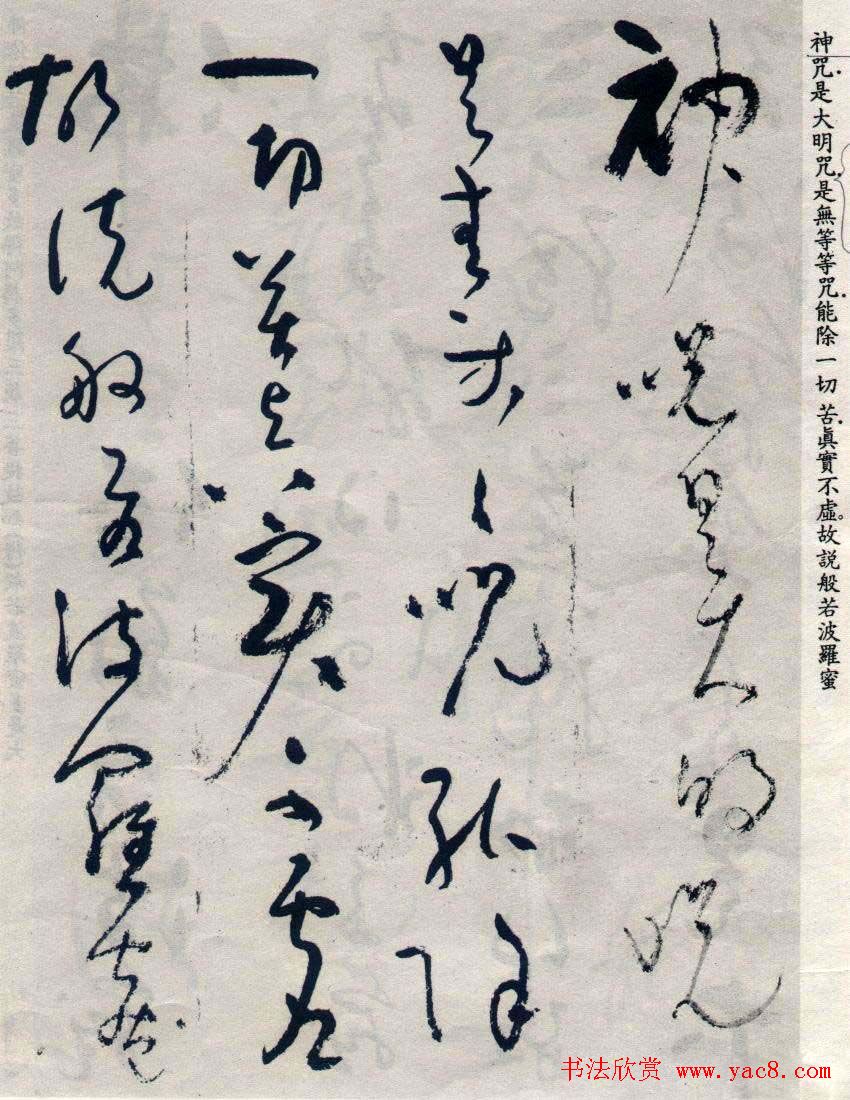 神咒．是大明咒．是無等等咒．能除一切苦．眞實不虛。故説般若波羅蜜
神呪是大明呪
是無等〻呪能除
一切苦真實不虛
故說般若波羅蜜
书法欣赏 www.yac8.com